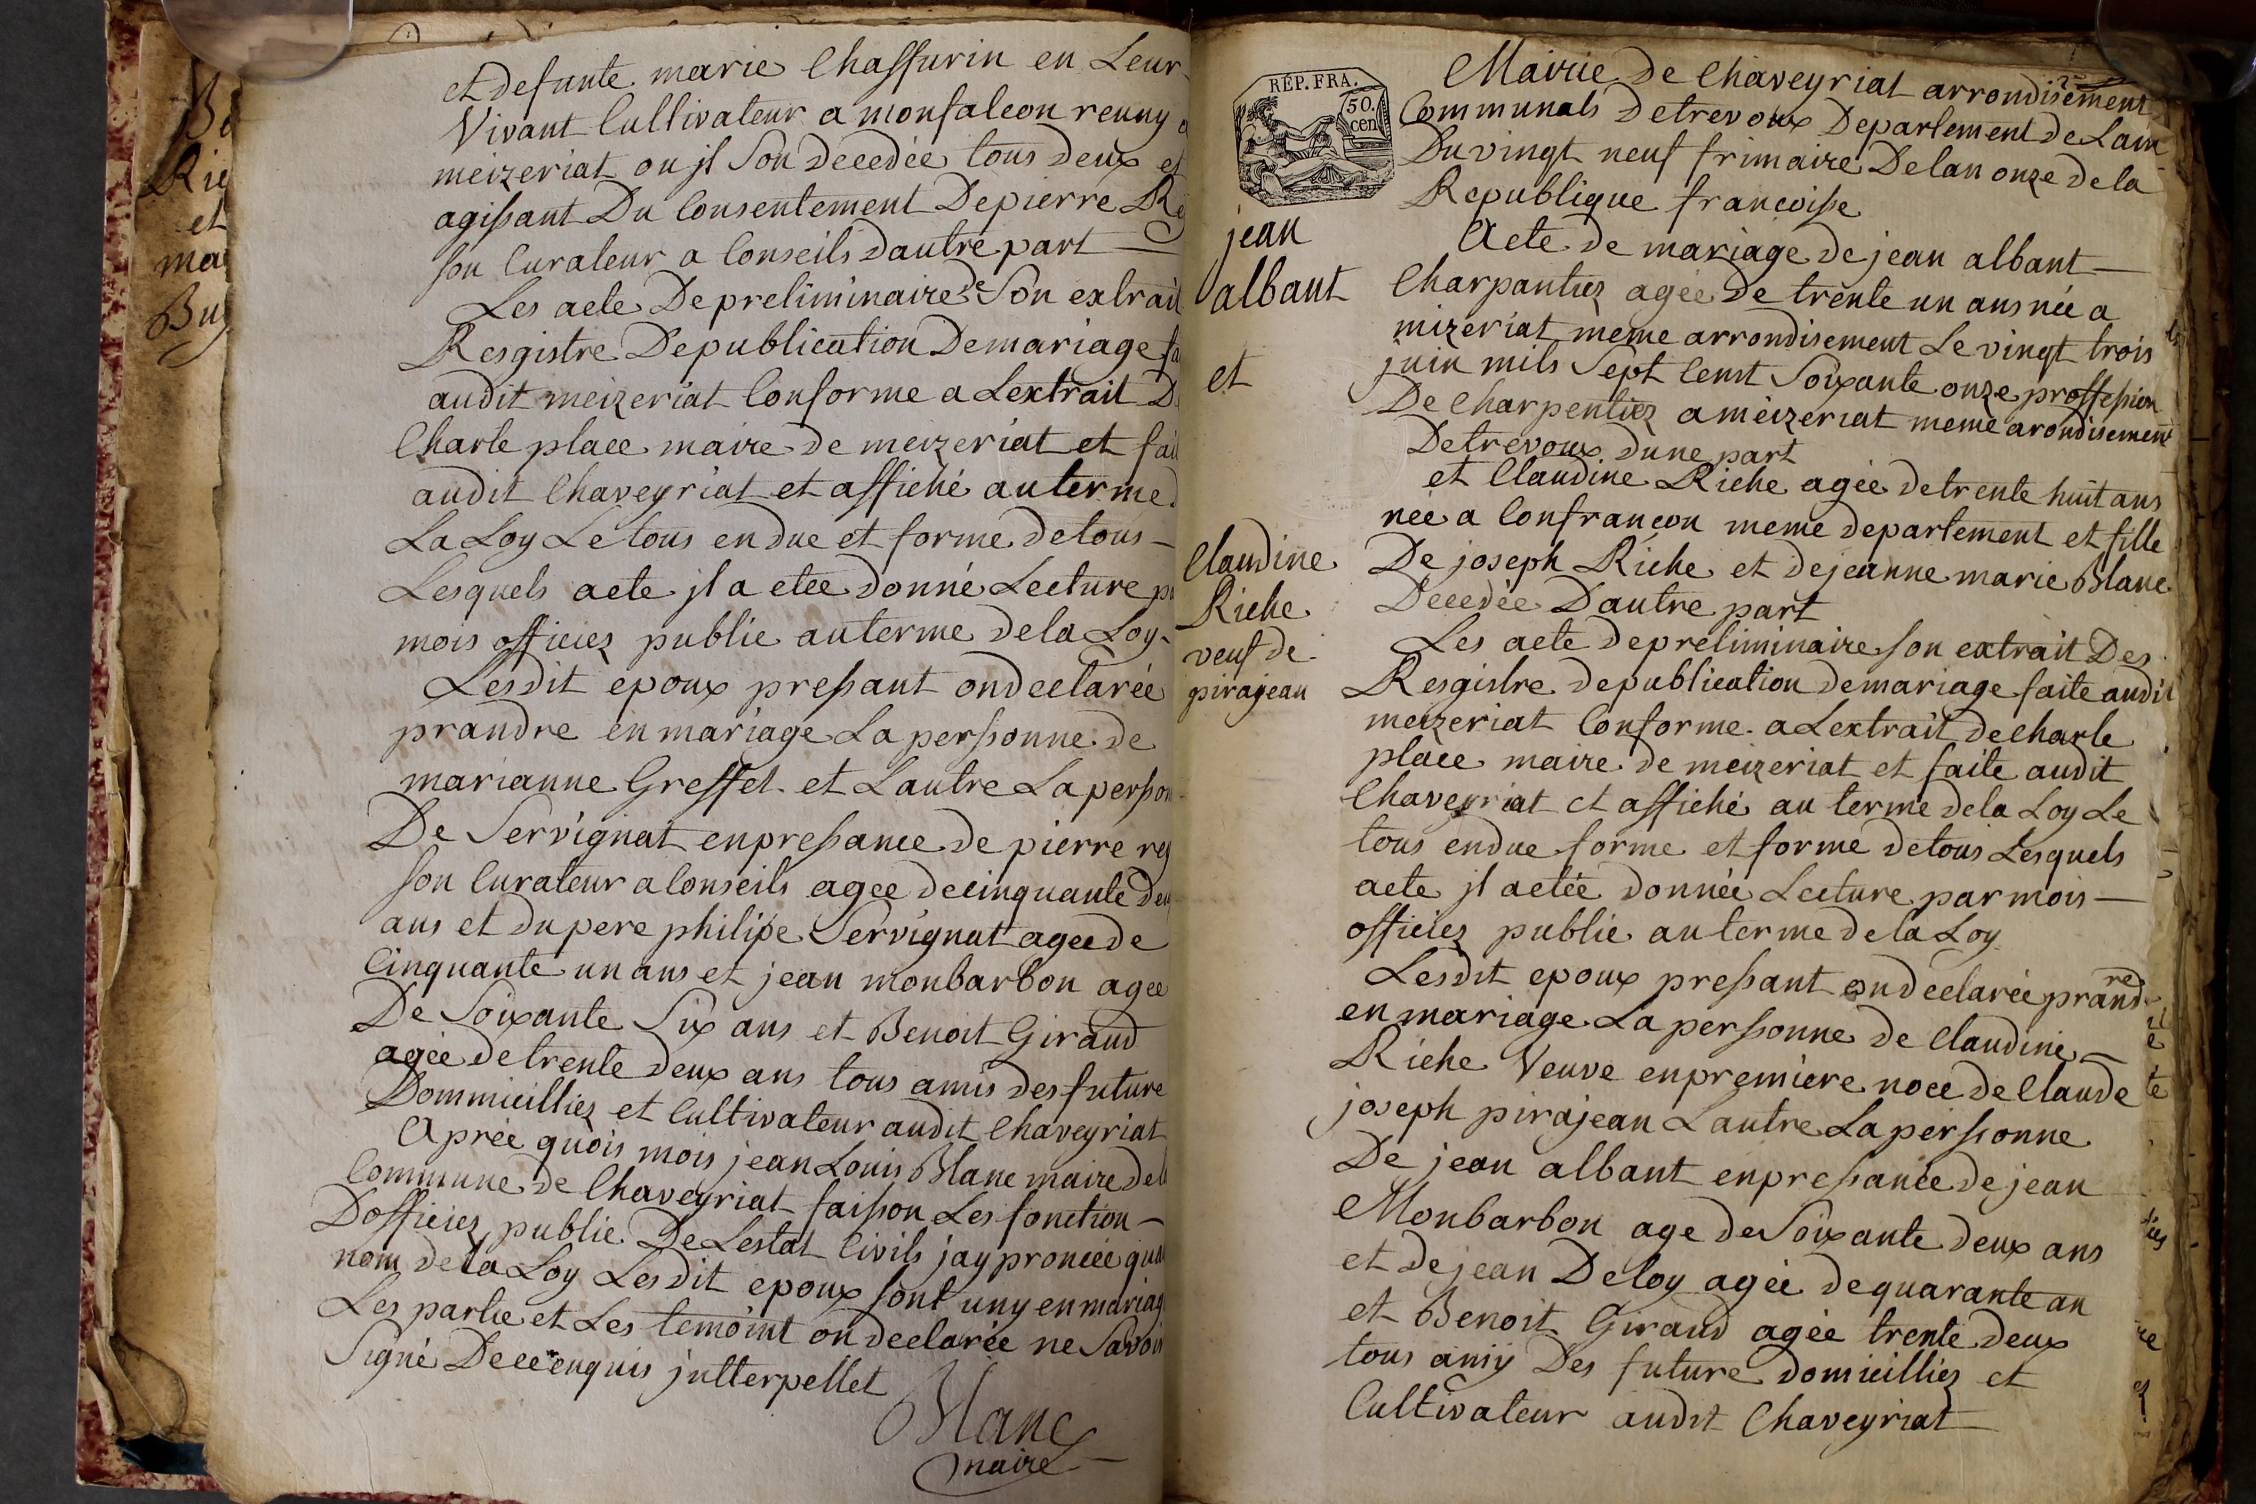 et defunte marie Chassurin en Leur
Vivant Cultivateur a monfalcon reuny
meizeriat ou jl Son decedée tous deux et
agissant Du Consentement De pierre
son Curateur a Conseils dautre part
Les acte De preliminaire de Son extrait
Resgistre De publication De mariage
audit meizeriat Conforme a Lextrait
Charle place maire de meizeriat et fait
audit Chaveyriat et affiché au terme
La Loy Le tous en due et forme de tous
Lesquels acte jl a etee donné Lecture
mois officiez public au terme de la Loy
Lesdit epoux pressant on declarée
prandre en mariage La perssonne de
marianne Greffet et Lautre La persson
De Servignat en pressance de pierre rey
son Curateur a Conseils agee de cinquante deux
ans et du pere philipe Servignat agee de
Cinquante un ans et jean monbarbon agee
De Soixante Six ans et Benoit Giraud
agée de trente deux ans tous amis des future
Dommicilliez et Cultivateur audit Chaveyriat
Aprée quois mois jean Louis Blanc maire de
Commune de Chaveyriat faisson Les fonction
Dofficiez public De Lestat Civils jay proncée
nom de la Loy Lesdit epoux sont uny en mariag
Les partie et Les temoint on declarée ne Savoir
Signé De ce enquis jntterpellet
Blanc
maire
RÉP. FRA.
50.
cen
jean
albant
et
Claudine
Riche
veuf de
pirajean
Mairie de Chaveyriat arrondisement
Communals De trevoux Departement de Lain
Du vingt neuf frimaire De lan onze de la
Republique francoisse
Acte de mariage de jean albant
Charpantiez agée De trente un ans née a
mizeriat meme arrondisement Le vingt trois
juin mils Sept Cent Soixante onze proffession
De Charpentiez a meizeriat meme arondisement
De trevoux dune part
et Claudine Riche agée de trente huit ans
née a Confrancon meme departement et fille
De joseph Riche et de jeanne marie Blanc
Decedée Dautre part
Les acte de preliminaire son extrait Des
Resgistre de publication de mariage faite audit
meizeriat Conforme a Lextrait de Charle
place maire de meizeriat et faite audit
Chaveyriat et affiché au terme de la Loy Le
tous en due forme et forme de tous Lesquels
acte jl a etée donnée Lecture par mois
officiez public au terme de la Loy
Lesdit epoux pressant on declarée prandre
en mariage La perssonne de Claudine
Riche Veuve en premiere noce de Claude
joseph pirajean Lautre La perssonne
De jean albant en pressance de jean
Monbarbon age de Soixante deux ans
et de jean Deloy agée de quarante an
et Benoit Giraud agée trente deux
tous amy Des future domicilliez et
Cultivateur audit Chaveyriat